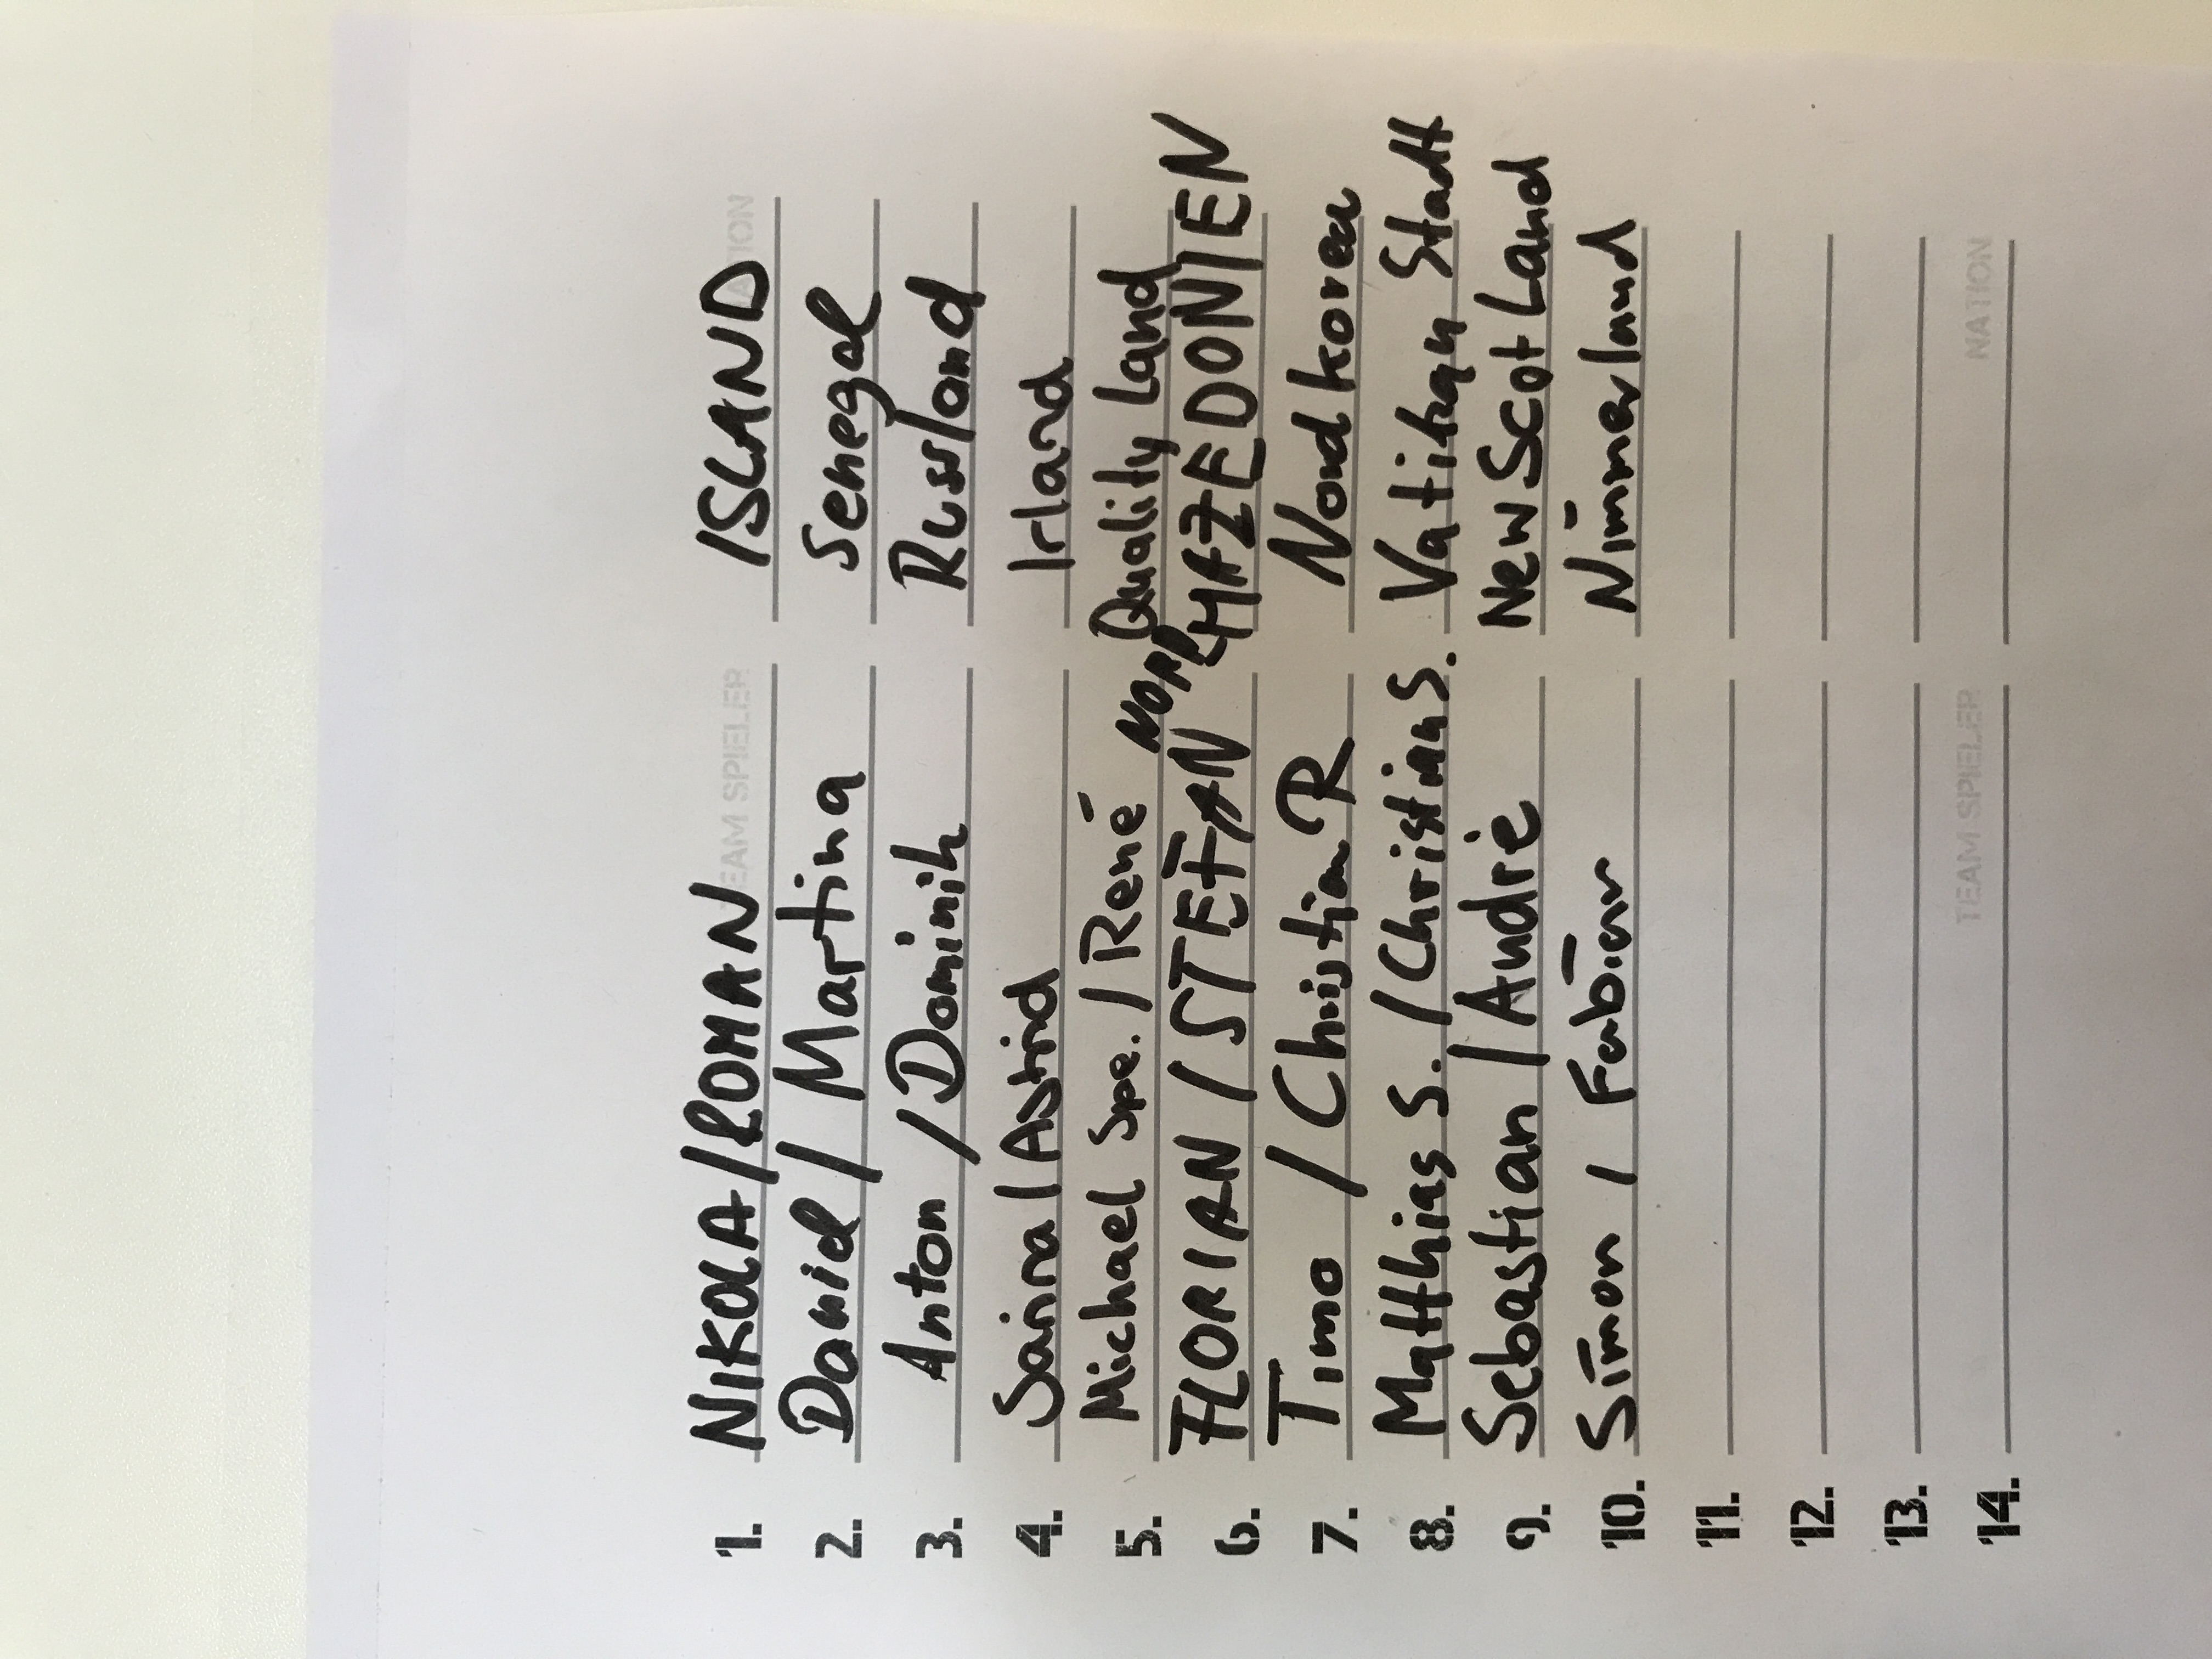 1. NIKOLA/ROMAN TEAM SPIELER ISLAND NATION
2. Daniel / Martina Senegal
3. Anton / Dominik Russland
4. Sanna / Astrid Irland
5. Michael Spe. / René Quality Land
6. FLORIAN / STEFAN NORD-MAZEDONIEN
7. Timo / Christian R Nordkorea
8. Matthias S. / Christian S. Vatikan Stadt
9. Sebastian / Andrè New Scot Land
10. Simon / Fabian Nimmerland
11.
12.
13.
14. TEAM SPIELER NATION